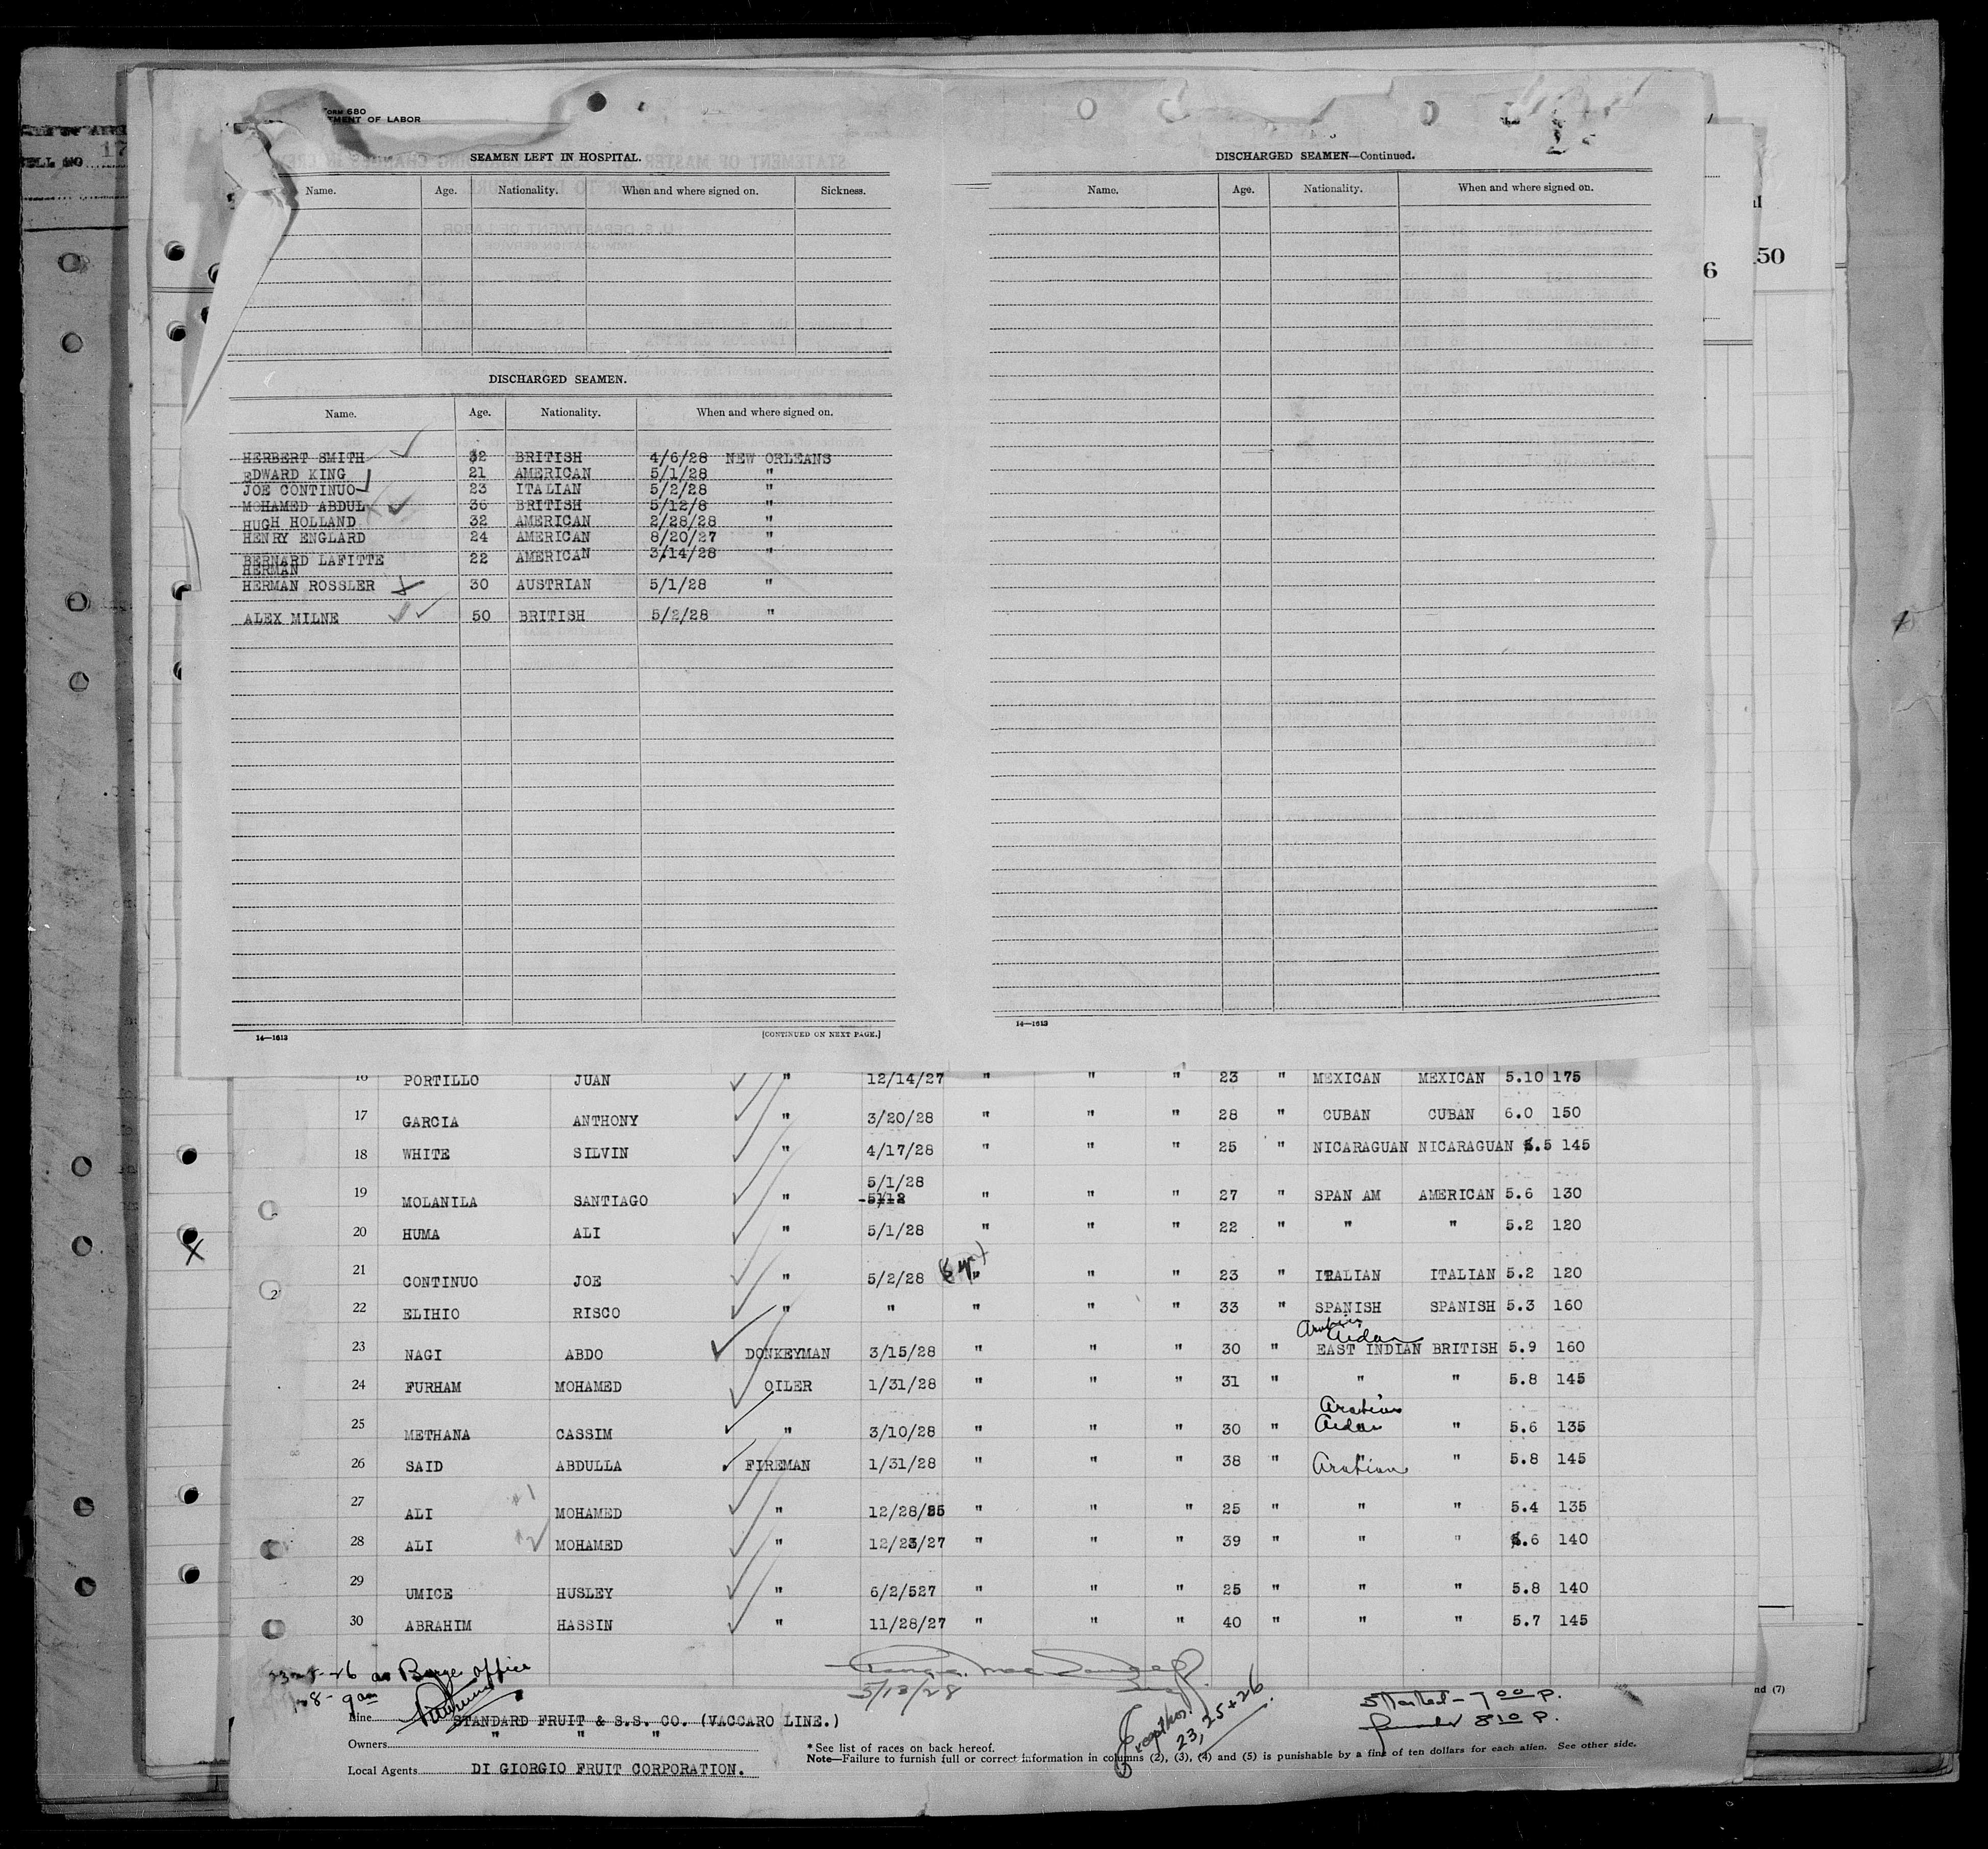 ELL NO 17
FORM 680
MENT OF LABOR
SEAMEN LEFT IN HOSPITAL.
Name. Age. Nationality. When and where signed on. Sickness.
DISCHARGED SEAMEN.
Name. Age. Nationality. When and where signed on.
HERBERT SMITH 32 BRITISH 4/6/28 NEW ORLEANS
EDWARD KING 21 AMERICAN 5/1/28 "
JOE CONTINUO 23 ITALIAN 5/2/28 "
MOHAMED ABDUL 36 BRITISH 5/12/8 "
HUGH HOLLAND 32 AMERICAN 2/28/28 "
HENRY ENGLARD 24 AMERICAN 8/20/27 "
BERNARD LAFITTE 22 AMERICAN 3/14/28 "
HERMAN
HERMAN ROSSLER 30 AUSTRIAN 5/1/28 "
ALEX MILNE 50 BRITISH 5/2/28 "
14—1613 [CONTINUED ON NEXT PAGE.]
DISCHARGED SEAMEN—Continued.
Name. Age. Nationality. When and where signed on.
14—1613
6
50
16 PORTILLO JUAN " 12/14/27 " " " 23 " MEXICAN MEXICAN 5.10 175
17 GARCIA ANTHONY " 3/20/28 " " " 28 " CUBAN CUBAN 6.0 150
18 WHITE SILVIN " 4/17/28 " " " 25 " NICARAGUAN NICARAGUAN 5.5 145
5/1/28
19 MOLANILA SANTIAGO " 5/12 " " " 27 " SPAN AM AMERICAN 5.6 130
20 HUMA ALI " 5/1/28 " " " 22 " " " 5.2 120
21 CONTINUO JOE " 5/2/28 " " " 23 " ITALIAN ITALIAN 5.2 120
22 ELIHIO RISCO " " " " " 33 " SPANISH SPANISH 5.3 160
Arabian
Aidan
23 NAGI ABDO DONKEYMAN 3/15/28 " " " 30 " EAST INDIAN BRITISH 5.9 160
24 FURHAM MOHAMED OILER 1/31/28 " " " 31 " " " 5.8 145
Arabian
25 METHANA CASSIM " 3/10/28 " " " 30 " Aidan " 5.6 135
26 SAID ABDULLA FIREMAN 1/31/28 " " " 38 " Arabian " 5.8 145
27 ALI #1 MOHAMED " 12/28/25 " " " 25 " " " 5.4 135
28 ALI #2 MOHAMED " 12/23/27 " " " 39 " " " 5.6 140
29 UMICE HUSLEY " 6/2/527 " " " 25 " " " 5.8 140
30 ABRAHIM HASSIN " 11/28/27 " " " 40 " " " 5.7 145
23-5-26 as Barge office
28- 9 am
5/13/28
Exceptions
23, 25 + 26
Started - 7 00 P.
finished 8 10 P.
Line STANDARD FRUIT & S.S. CO. (VACCARO LINE.)
Owners " " "
Local Agents DI GIORGIO FRUIT CORPORATION.
* See list of races on back hereof.
Note—Failure to furnish full or correct information in columns (2), (3), (4) and (5) is punishable by a fine of ten dollars for each alien. See other side.
nd (7)